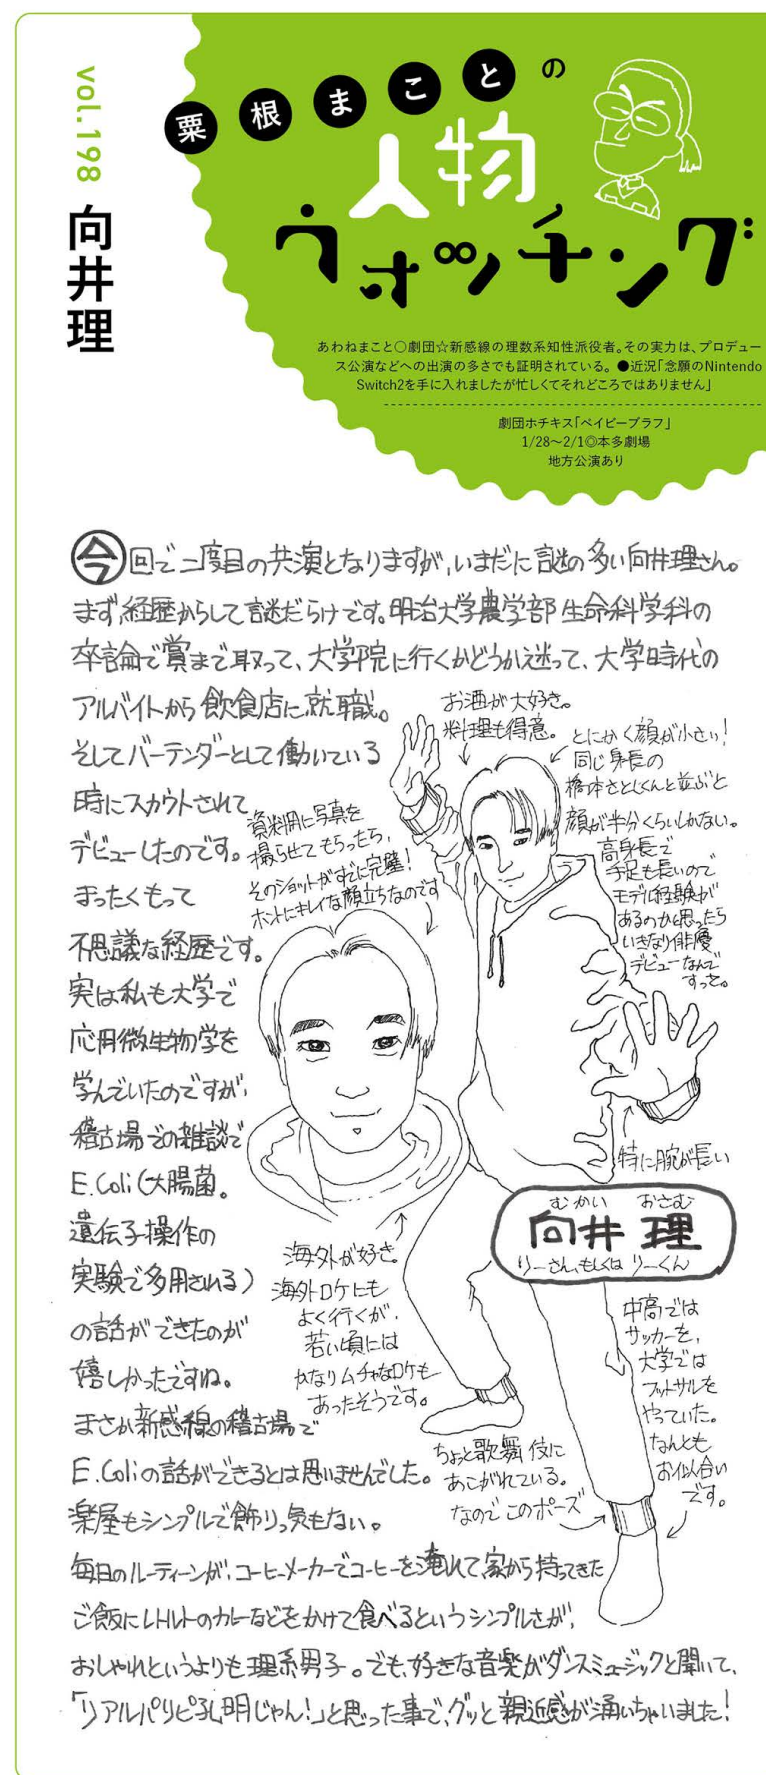 vol.198 向井理
粟根まことの
人物
ウォッチング
あわねまこと○劇団☆新感線の理数系知性派役者。その実力は、プロデュー
ス公演などへの出演の多さでも証明されている。●近況「念願のNintendo
Switch2を手に入れましたが忙しくてそれどころではありません」
劇団ホチキス「ベイビーブラフ」
1/28〜2/1◎本多劇場
地方公演あり
今回で二度目の共演となりますが、いまだに謎の多い向井理さん。
まず、経歴からして謎だらけです。明治大学農学部生命科学科の
卒論で賞まで取って、大学院に行くかどうか迷って、大学時代の
アルバイトから飲食店に就職。
そしてバーテンダーとして働いている
時にスカウトされて
デビューしたのです。
まったくもって
不思議な経歴です。
実は私も大学で
応用微生物学を
学んでいたのですが、
稽古場での雑談で
E.Coli(大腸菌。
遺伝子操作の
実験で多用される)
の話ができたのが
嬉しかったですね。
まさか新感線の稽古場で
E.Coliの話ができるとは思いませんでした。
楽屋もシンプルで飾りっ気もない。
毎日のルーティーンが、コーヒーメーカーでコーヒーを淹れて、家から持ってきた
ご飯にレトルトのカレーなどをかけて食べるというシンプルさが、
おしゃれというよりも理系男子。でも、好きな音楽がダンスミュージックと聞いて、
「リアルパリピ孔明じゃん!」と思った事で、グッと親近感が涌いちゃいました!
お酒が大好き。
料理も得意。
とにかく顔が小さい!
同じ身長の
橋本さとしくんと並ぶと
顔が半分くらいしかない。
高身長で
手足も長いので
モデル経験が
あるのかと思ったら
いきなり俳優
デビューなんで
すって。
資料用に写真を
撮らせてもらったら、
そのショットがすでに完璧!
ホントにキレイな顔立ちなのです
特に腕が長い
むかい おさむ
向井 理
りーさん、もしくは りーくん
海外が好き。
海外ロケにも
よく行くが、
若い頃には
かなりムチャなロケも
あったそうです。
中高では
サッカーを、
大学では
フットサルを
やっていた。
なんとも
お似合い
です。
ちょっと歌舞伎に
あこがれている。
なので このポーズ